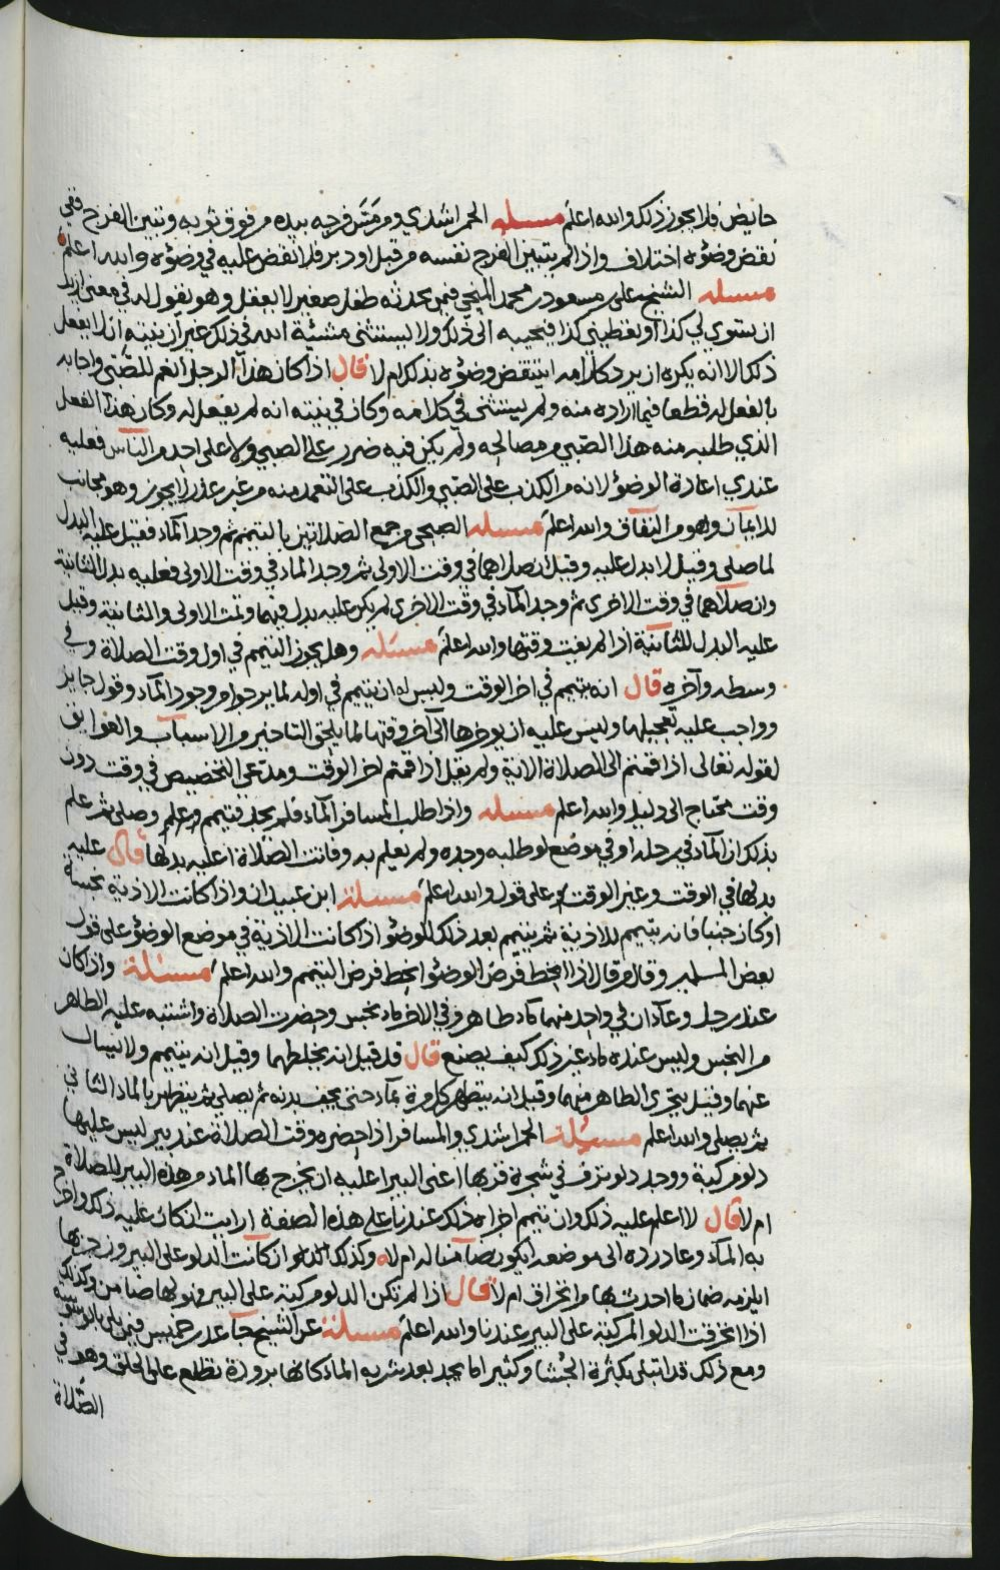 حايض فلا يجوز ذلك والله اعلم مسئله الحمراشدي ومن مَسّ فرجه بيده من فوق ثوبه وتبين الفرج ففي
نقض وضوٌه اختلاف واذا لم يتبين الفرج نفسه من قبل او دبر فلا نقض عليه في وضوٌه والله اعلم
مسئله الشيخ علي بن مسعود بن محمد المنجي فيمن يحدثه طفل صغير لا يعقل وهو يقول له في معنى اريد
ان تسوي لي كذا او تعطيني كذا فيجيبه الى ذلك ولا يستثني مشئية الله في ذلك غير ان نيته انه لا يفعل
ذلك الا انه يكره ان يرد كلامه اينتقض وضوٌه بذلك ام لا قال اذا كان هذا الرجل انعم للصّبي واجابه
بالفعل له قطعا فيما اراده منه ولم يستثني في كلامه وكان في نيته انه لم يفعل له وكان هذا الفعل
الذي طلبه منه هذا الصّبي من مصالحه ولم يكن فيه ضرر على الصبي ولا على احد من الناس فعليه
عندي اعادة الوضوٌ لانه من الكذب على الصّبي والكذب على التعمد منه من غير عذر لا يجوز وهو مجانب
للايمان وهو من النفاق والله اعلم مسئله الصبحي ومن جمع الصّلاتين بالتيمم ثم وجد المآء فقيل عليه البدل
لما صلى وقيل لا بدل عليه وقيل ان صلاهما في وقت الاولى ثم وجد الماء في وقت الاولى فعليه بدل الثانية
وان صلاهما في وقت الاخرى ثم وجد المآء في وقت الاخرى لم يكن عليه بدل فيهما وتمت الاولى والثانية وقيل
عليه البدل للثانية اذا لم يفت وقتها والله اعلم مسئله وهل يجوز التيمم في اول وقت الصلاة وفي
وسطه وآخره قال انه يتيمم في اخر الوقت وليس له ان يتيمم في اوله لما يرجوا من وجود المآء وقول جايز
وواجب عليه تعجيلها وليس عليه ان يوخرها الى آخر وقتها لما يلحق التاخير من الاسباب والعوايق
لقوله تعالى اذا قمتم الى الصلاة الاية ولم يقل اذا قمتم اخر الوقت ومدعي التخصيص في وقت دون
وقت محتاج الى دليل والله اعلم مسئله واذا طلب المسافر المآء فلم يجد فتيمم وصلى ثم علم
بذلك ان المآء في رحله او في موضع لو طلبه وجده ولم يعلم به وفاتت الصلاة اعليه بدلها قال عليه
بدلها في الوقت وغير الوقت على قول والله اعلم مسئلة ابن عبيدان واذا كانت الاذية نجسة
او كان جنبا فانه يتيمم للاذية ثم يتيمم بعد ذلك للوضوٌ اذا كانت الاذية في موضع الوضوٌ على قول
بعض المسلمين وقال من قال اذا انحط فرض الوضوٌ انحط فرض التيمم والله اعلم مسئلة واذا كان
عند رجل وعآءان في واحد منهما مآء طاهر وفي الاخر مآء نجس وحضرت الصلاة واشتبه عليه الطاهر
من النجس وليس عنده مآء غير ذلك كيف يصنع قال قد قيل انه يخلطهما وقيل انه يتيمم ولا يسال
عنهما وقيل يتحرى الطاهر منهما وقيل انه يتطهر كل مرة بمآء حتى يجف بدنه ثم يصلي ثم يتطهر بالماء الثاني
ثم يصلي والله اعلم مسئلة الحمراشدي والمسافر اذا حضره وقت الصلاة عند بير ليس عليها
دلو مركبة ووجد دلو نزف في شجرة قربها اعني البير اعليه ان يخرج بها الماء من هذه البير للصلاة
ام لا قال لا اعلم عليه ذلك وان تيمم اجزاه ذلك عندنا على هذه الصفة ارايت ان كان عليه ذلك واخرج
به المآء وعاد رده الى موضعه ايكون ضامنا له ام لا وكذلك ان كانت الدلو على البير وزجر بها
ايلزمه ضمان ما احدث بها من انخراق ام لا قال اذا لم تكن الدلو مركبة على البير فنولها ضامن وكذلك
اذا انخرقت الدلو المركبة على البير عندنا والله اعلم مسئلة عن الشيخ جاعد بن خميس فيمن بلي بالريبة
ومع ذلك قد ابتلي بكثرة الجُشا وكثيرا ما يجد بعد شربه الماء كانها برودة تطلع على الحلق وهو في
الصّلاة